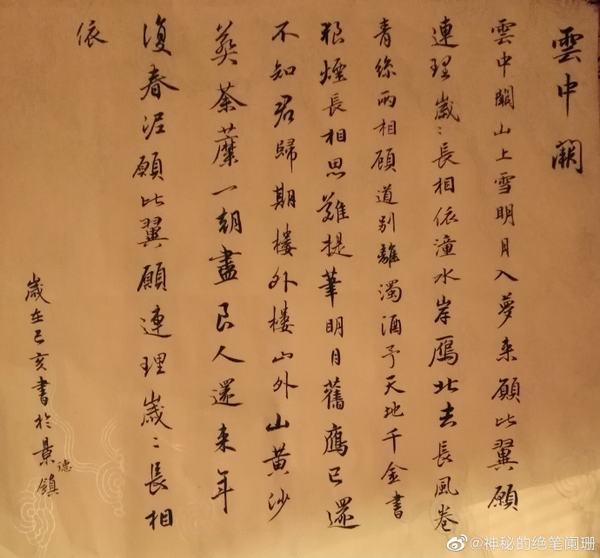 雲中闕
雲中闕山上雪明月入夢來願比翼願
連理歲：長相依潼水岸鴈北去長風卷
青絲兩相顧道別離濁酒予天地千金書
狼煙長相思難提筆明月舊鷹已還
不知君歸期樓外樓山外山黃沙
葬荼蘼一朝盡良人還來年
復春泥願比翼願連理歲：長相
依
歲在己亥書於景德鎮
@神秘的绝笔阑珊